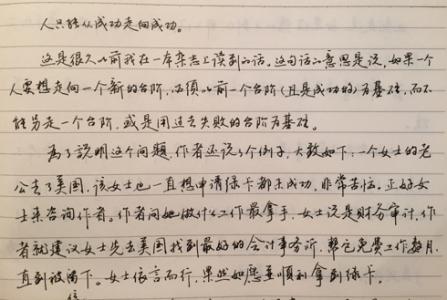 人只能从成功走向成功。
这是很久以前我在一本杂志上读到的话。这句话的意思是说，如果一个
人要想走向一个新的台阶，必须以前一个台阶（且是成功的）为基础，而不
能另走一个台阶，或是用过去失败的台阶为基础。
为了说明这个问题，作者还说了个例子，大致如下：一个女士的老
公去了美国，该女士也一直想申请绿卡都未成功，非常苦恼。正好女
士来咨询作者。作者问她做什么工作最拿手，女士说是财务审计，作
者就建议女士先去美国找到最好的会计事务所，帮它免费工作数月，
直到被留下。女士依言而行，果然如愿至顺利拿到绿卡。